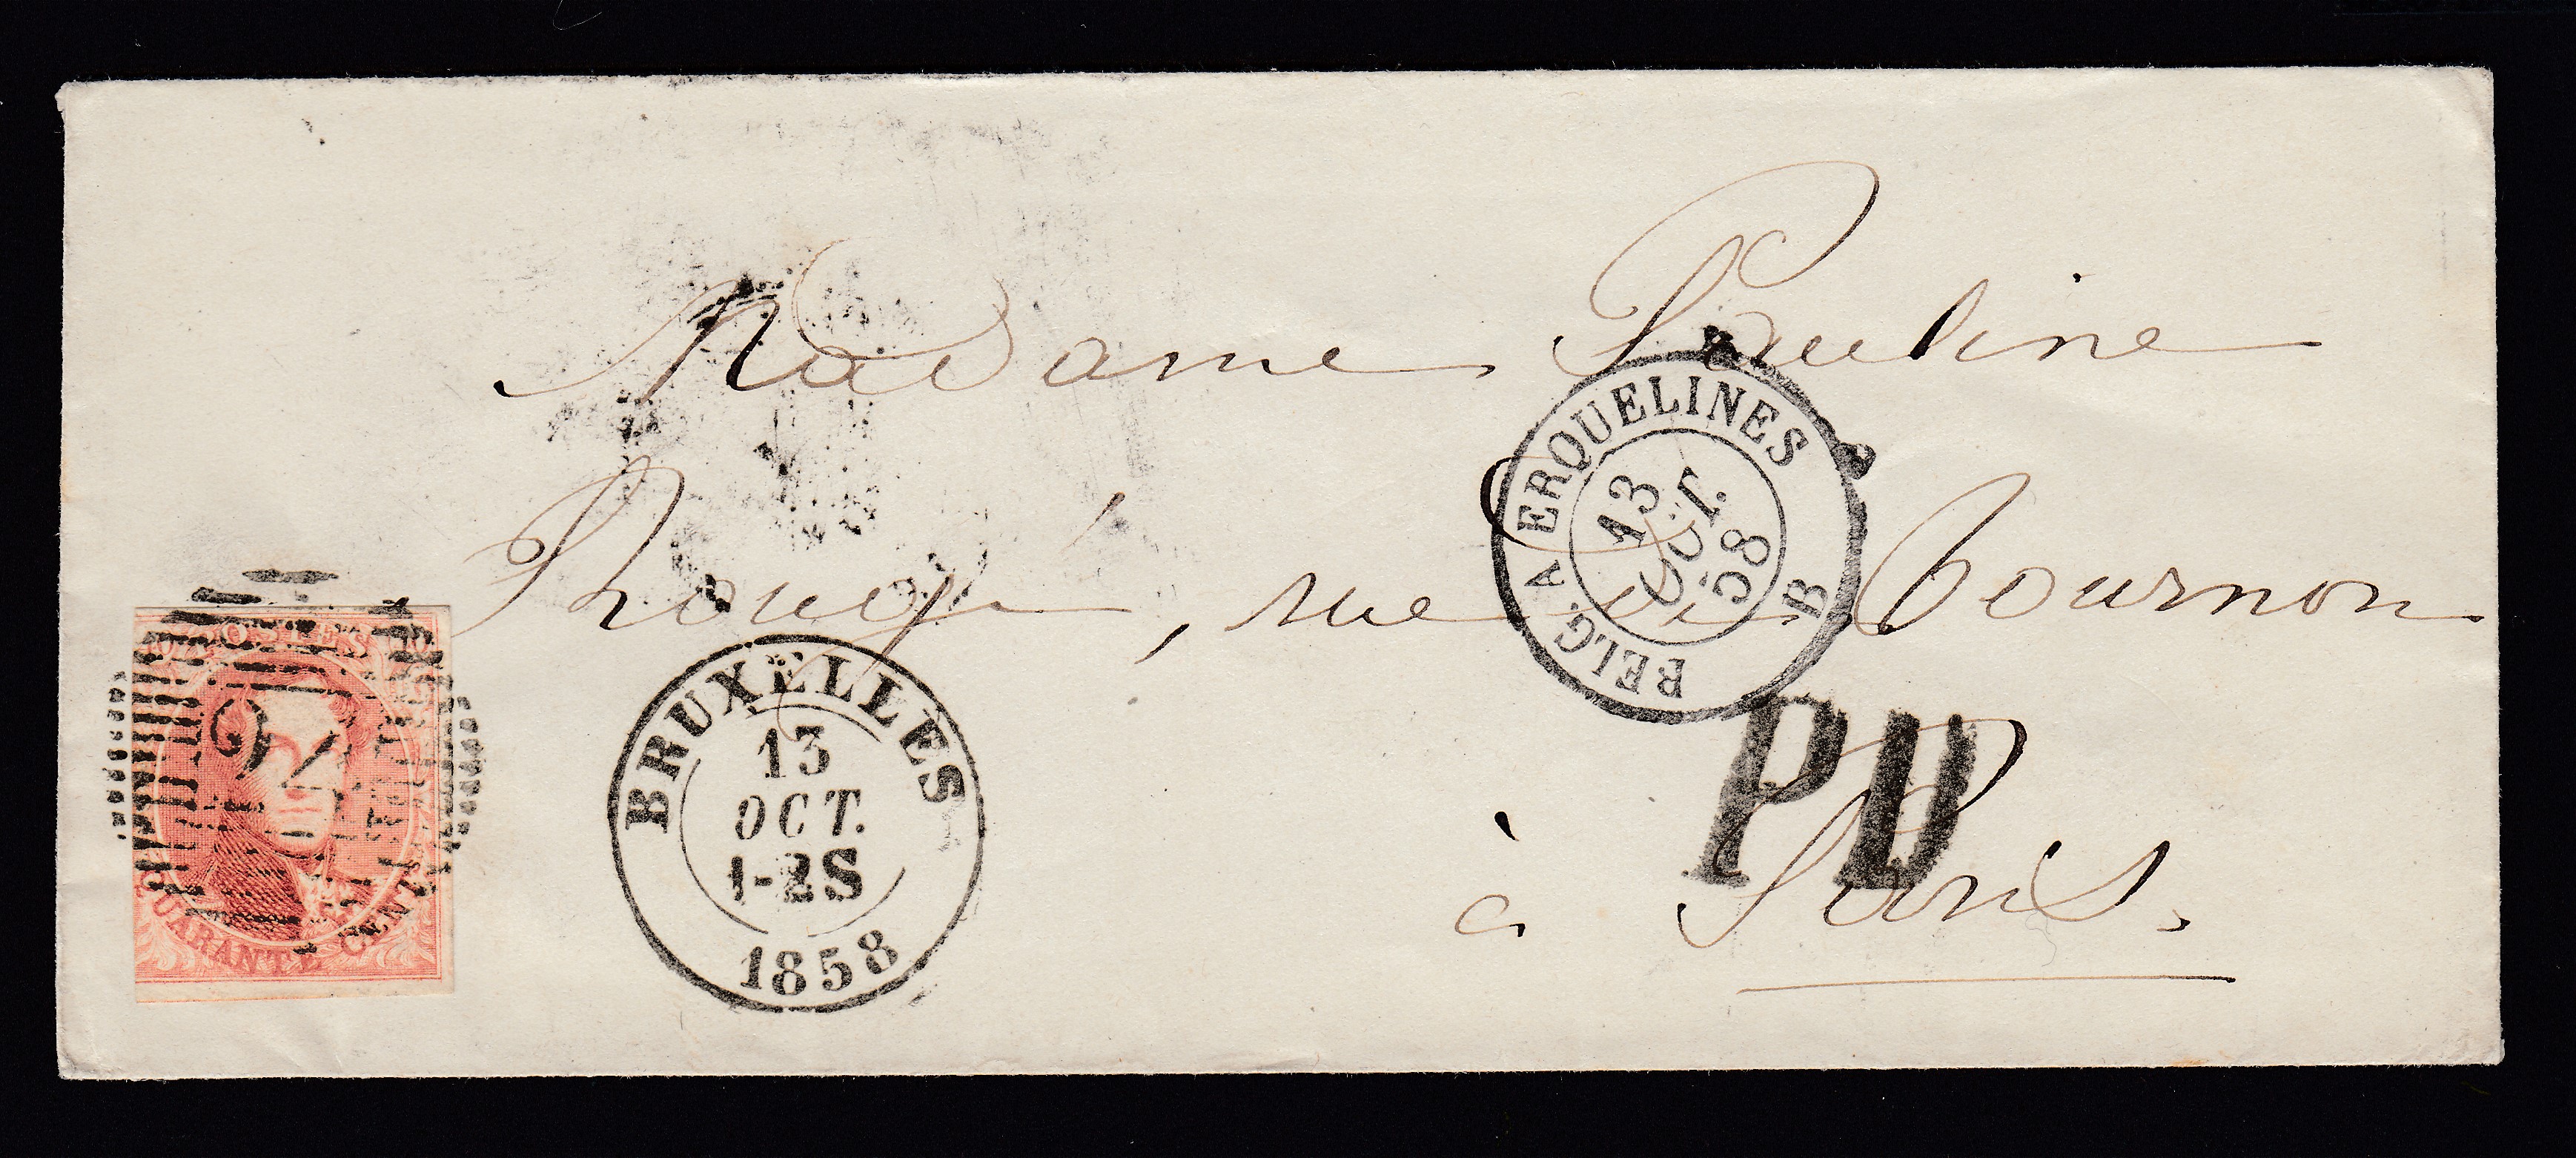 Madame Pauline
, rue de Tournon
à Paris.
POSTES
QUARANTE CENTS
BRUXELLES
13
OCT.
1-2S
1858
BELG. A ERQUELINES
13
OCT.
58
B
PD